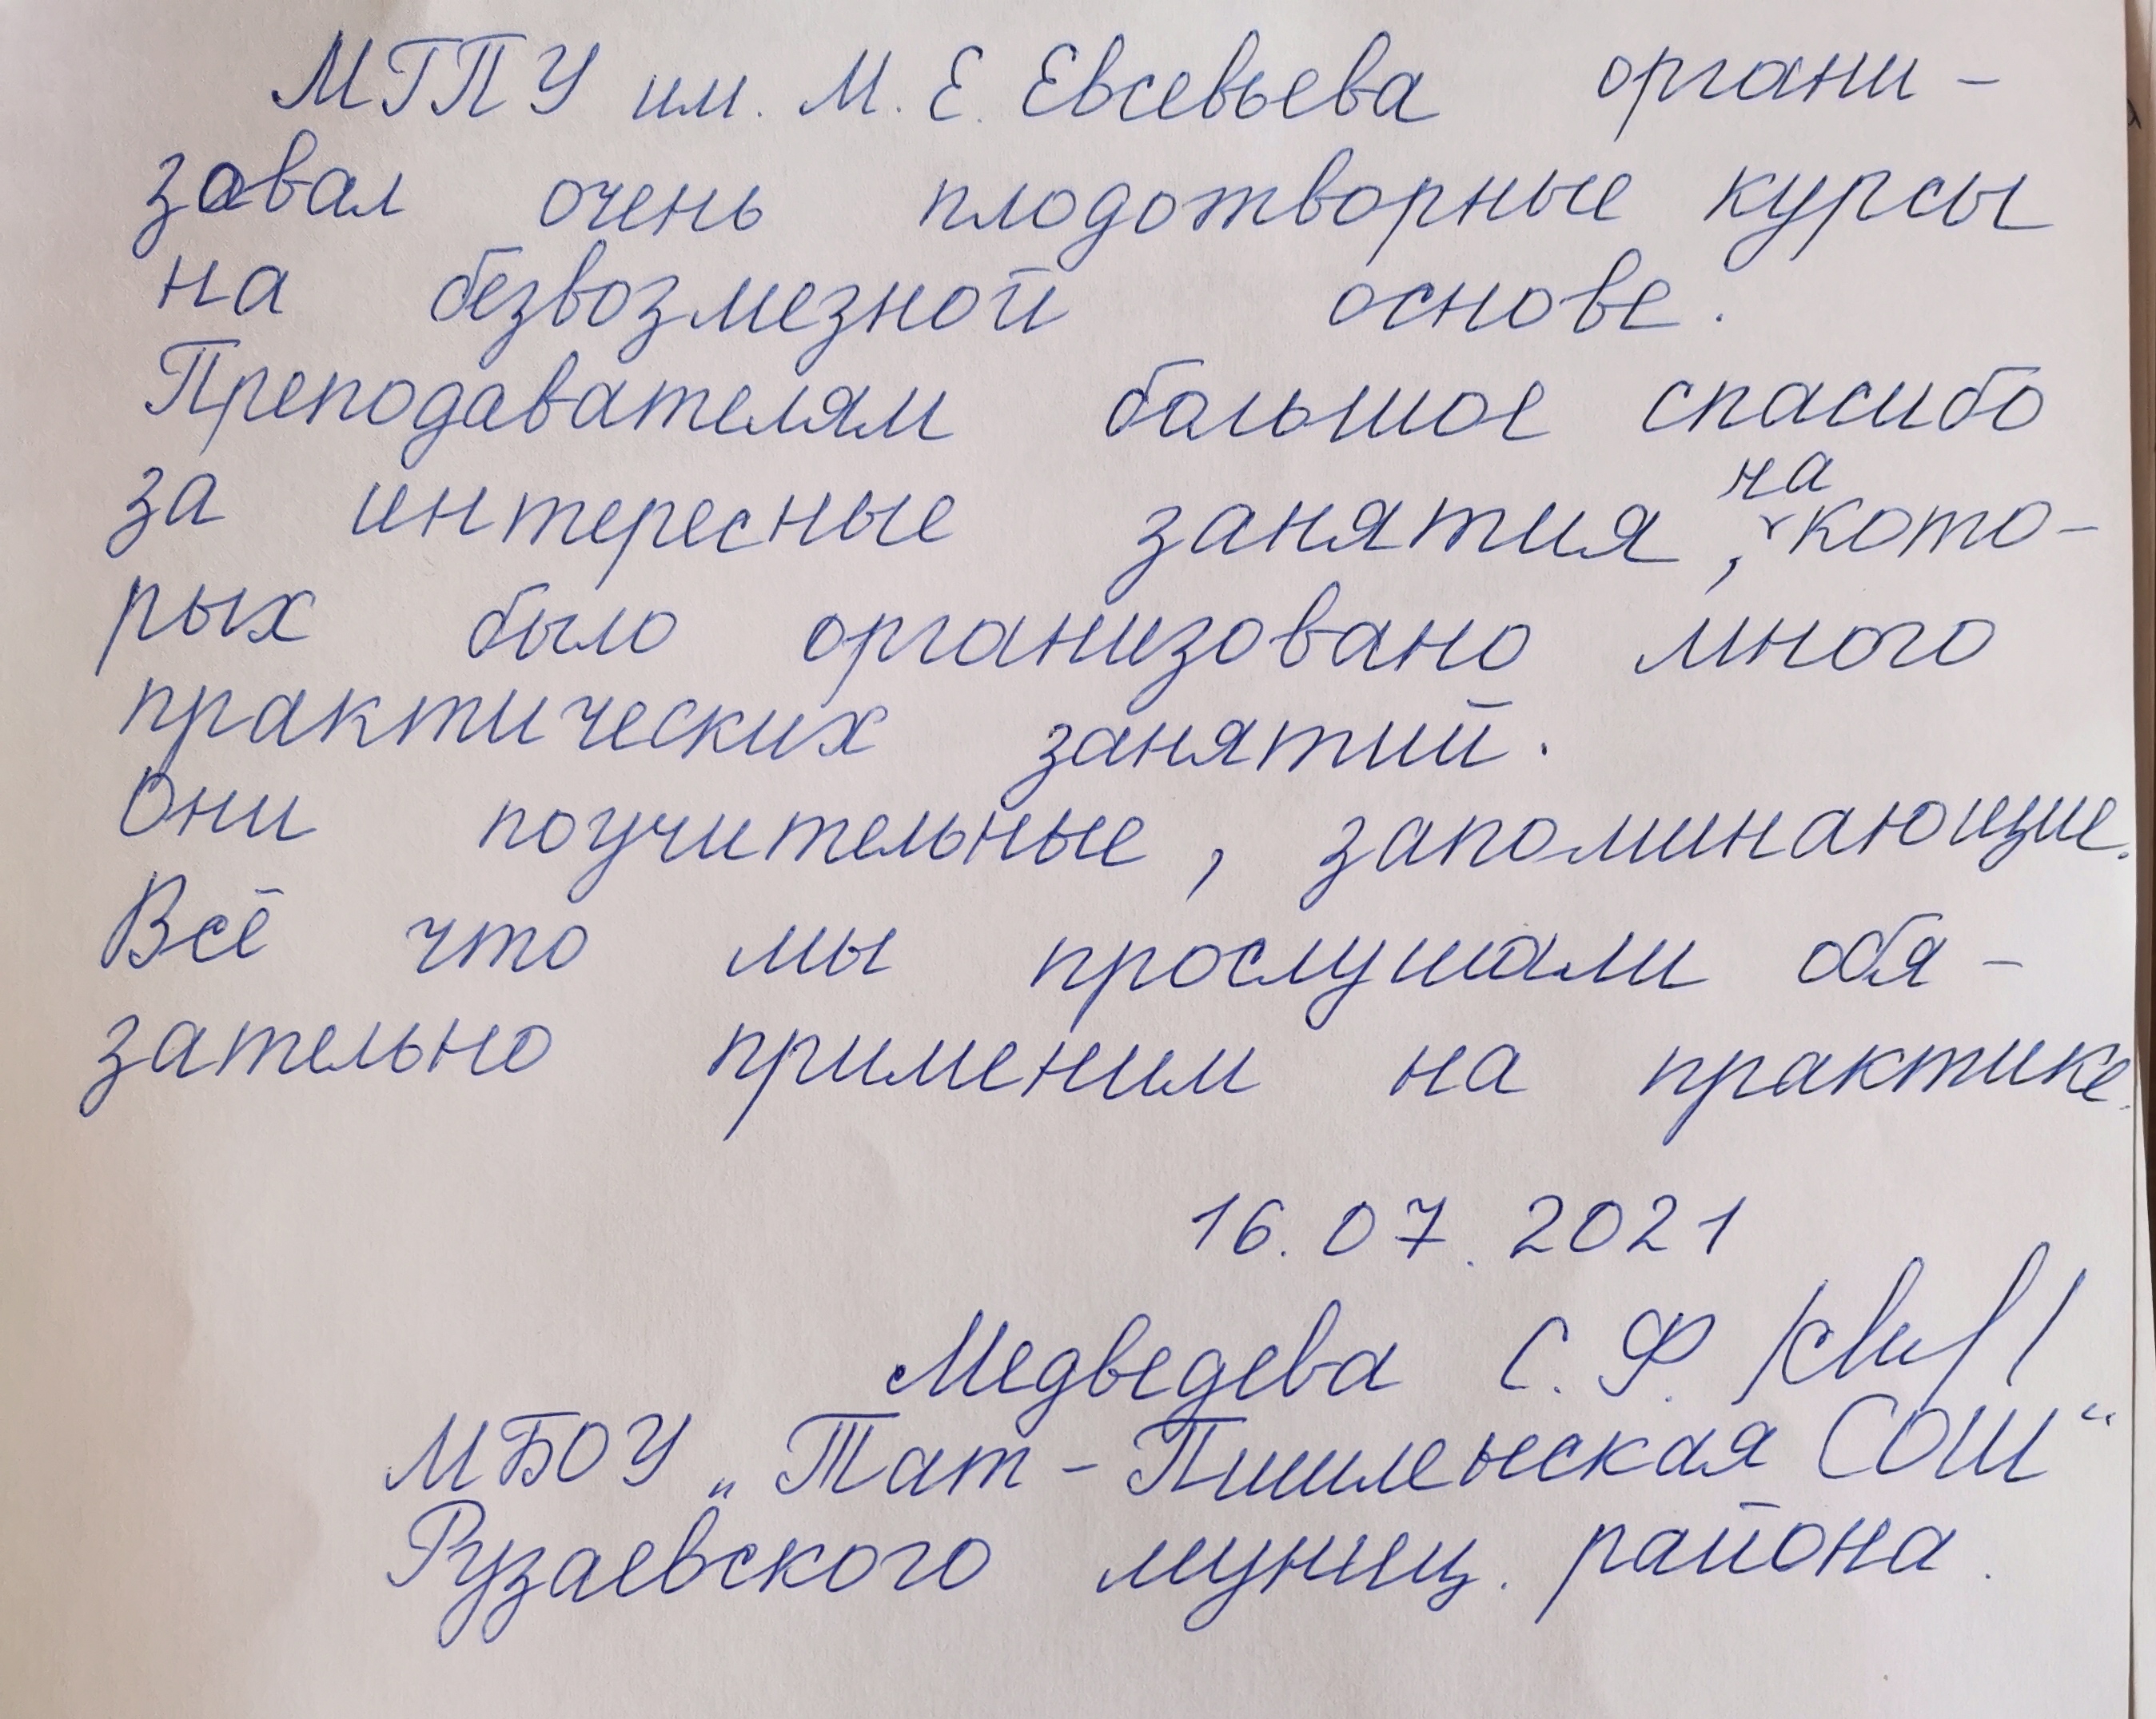 МГПУ им. М. Е. Евсевьева органи-
зовал очень плодотворные курсы
на безвозмезной основе.
Преподавателям большое спасибо
за интересные занятия, на кото-
рых было организовано много
практических занятий.
Они поучительные, запоминающие.
Всё что мы прослушали обя-
зательно применим на практике.
16.07.2021
Медведева С. Ф.
МБОУ „Тат-Пишленская СОШ“
Рузаевского муниц. района.